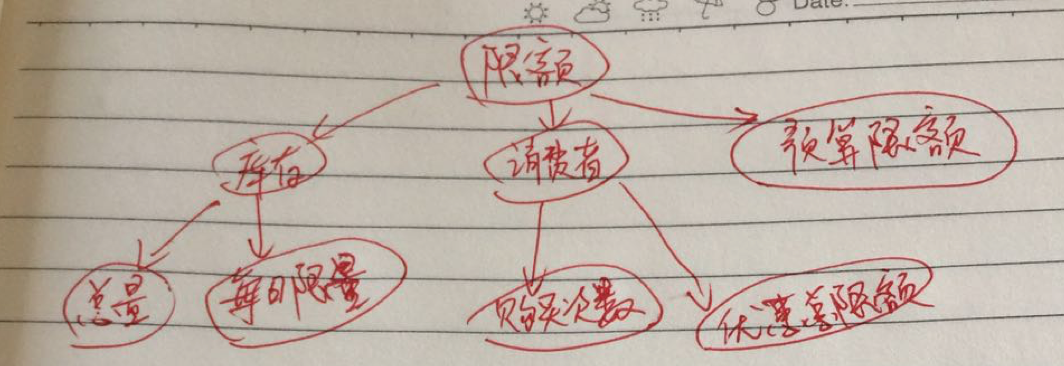 Date:
限额
库存 消费者 预算限额
总量 每日限量 购买次数 优惠总限额